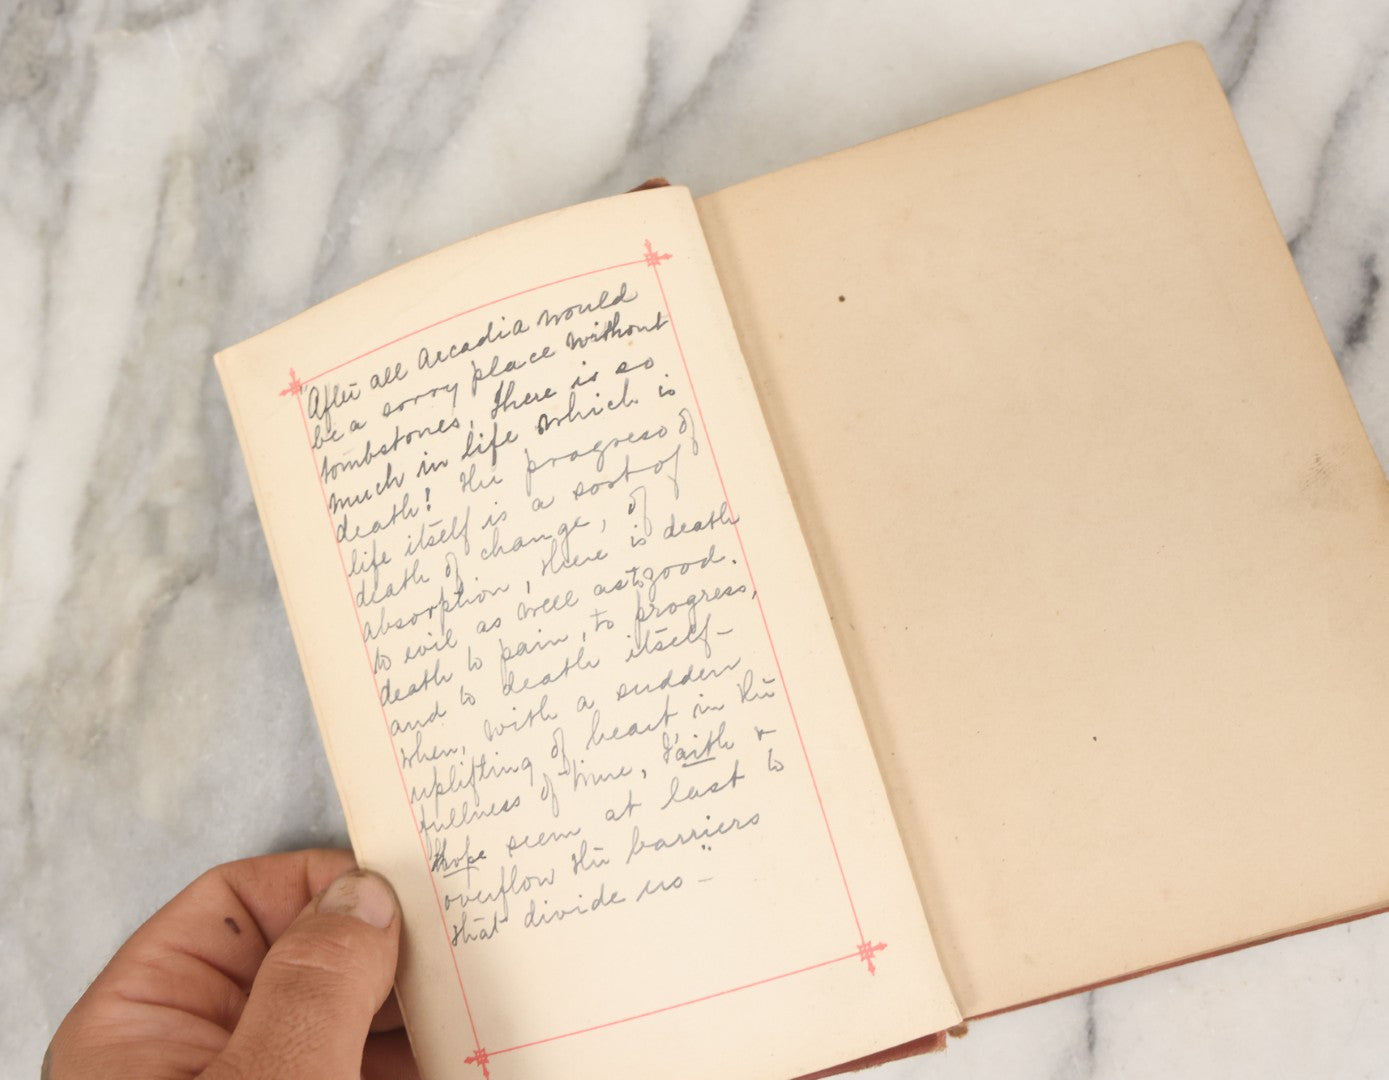 "After all Arcadia would
be a sorry place without
tombstones, there is so
much in life which is
death! The progress of
life itself is a sort of
death of change, of
absorption, there is death
to evil as well as to good.
death to pain, to progress,
and to death itself—
when, with a sudden
uplifting of heart in the
fullness of time, Faith &
Hope seem at last to
overflow the barriers
that divide us—"